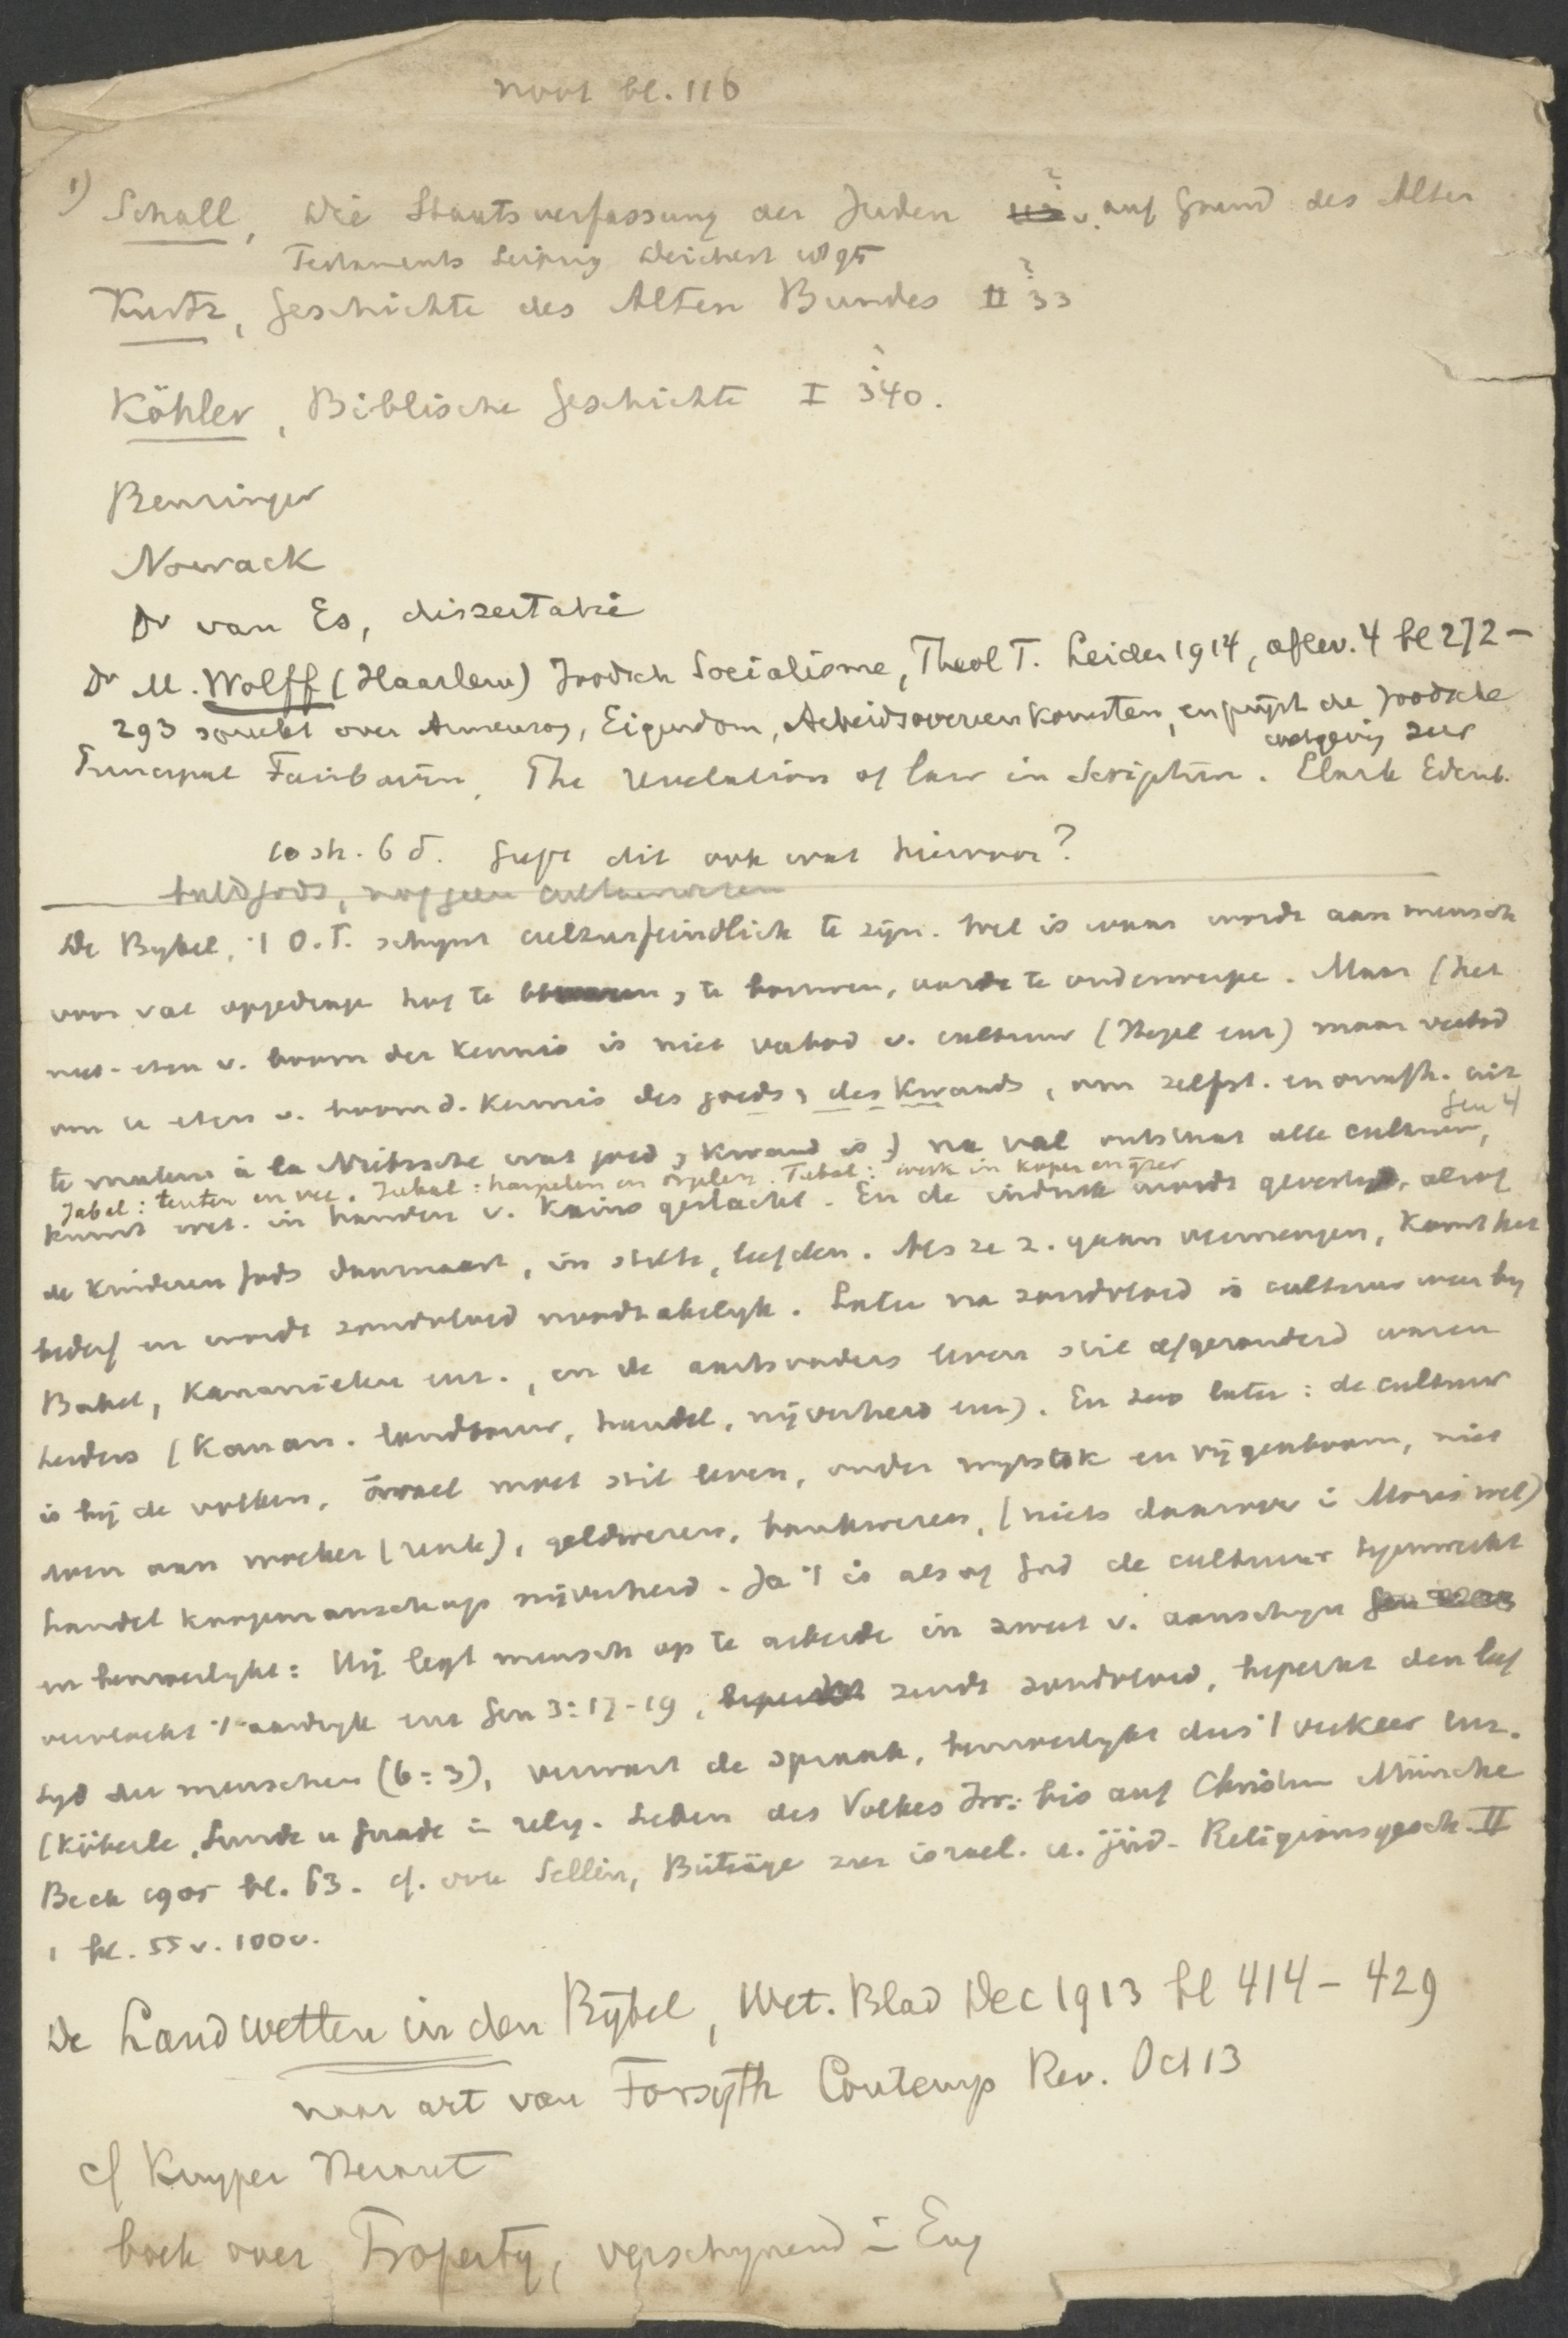 noot bl. 116
1) Schall, Die Staatsverfassung der Juden auf Grund des Alten
Testaments Leipzig Deichert 1896
Kurtz, Geschichte des Alten Bundes II 33
Köhler, Biblische Geschichte I 340.
Benzinger
Nowack
Dr van Es, dissertatie
Dr M. Wolff (Haarlem) Joodsch Socialisme, Theol T. Leiden 1914, aflev. 4 bl 272 -
293 spreekt over Armenzorg, Eigendom, Arbeidsovereenkomsten, en prijst de Joodsche
wetgeving zeer
Principal Fairbairn, The revelation of law in Scripture. Clark Edinb.
10 sh. 6 d. Geeft dit ook wat hiervoor?
De Bybel, 't O.T. schynt culturfeindlich te zijn. Wel is waar wordt aan mensch
voor val opgedragen hof te bewaren, te bouwen, aarde te onderwerpen. Maar (het
niet-eten v. boom der kennis is niet verbod v. cultuur (Hegel enz) maar verbod
om te eten v. boom d. kennis des goeds & des kwaads, om zelfst. en onafh. uit
te maken à la Nietzsche wat goed & kwaad is) na val ontstaat alle cultuur, Gen 4
Jabel: tenten en vee. Jubal: harpen en orgelen. Tubal: werk in koper en ijzer
kunst wet. in handen v. Kains geslacht. En de indruk wordt gevestigd, alsof
de kinderen Gods daarnaast, in stilte, leefden. Als ze z. gaan vermengen, komt het
bederf en wordt zondvloed noodzakelyk. Later na zondvloed is cultuur weer by
Babel, Kananieten enz., en de aartsvaders leven stil afgezonderd waren
herders (Kanaän. landbouw, handel, nijverheid enz). En zoo later: de cultuur
is bij de volken, Israel moet stil leven, onder wynstok en vijgenboom, niet
doen aan woeker (rente), geldwezen, bankwezen, (niets daarover in Mozes wet)
handel koopmanschap nijverheid. Ja 't is alsof God de cultuur tegenwerkt
en bemoeilykt: Hij legt mensch op te arbeiden in zweet v. aanschyn
vervloekt 't aardryk enz Gen 3:17-19, zendt zondvloed, beperkt den leef
tyd der menschen (6:3), verwart de spraak, bemoeilykt dus 't verkeer enz.
(Köberle, Sünde u Gnade im relig. Leben des Volkes Isr. bis auf Christum München
Beck 1905 bl. 63. cf. ook Sellin, Beiträge zur israel. u. jüd. Religionsgesch. II
1 bl. 55 v. 100 v.
De Landwetten in den Bijbel, Wet. Blad Dec 1913 bl 414 - 429
naar art van Forsyth Contemp Rev. Oct 13
cf Kuyper Heraut
boek over Property, verschynend in Eng